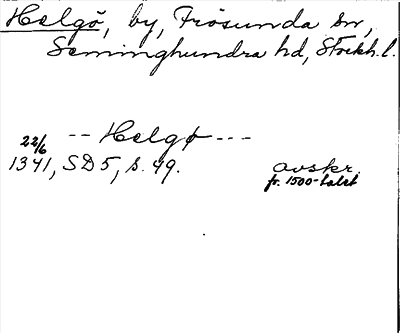 Helgö, by, Frösunda sn,
Seminghundra hd, Stockh. l.
22/6 -- Helgø ---
1341, SD 5, s. 49. avskr.
fr. 1500-talet